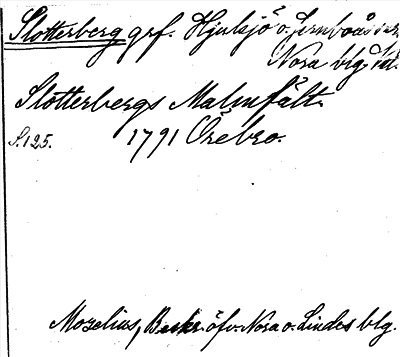 Slotterberg grf. Hjulsjö o. Jernboås s:nr
Nora blg.
Slotterbergs Malmfält.
S. 125. 1791 Örebro.
Mozelius, Beskr. öfv. Nora o. Lindes blg.